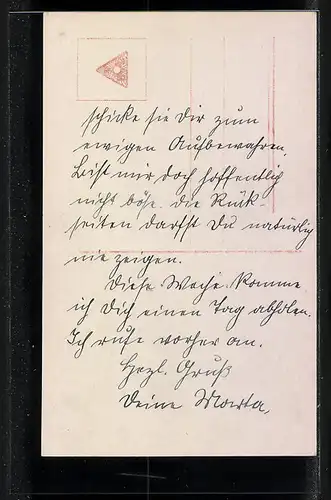 schicke sie Dir zum
ewigen Aufbewahren.
Bist mir doch hoffentlich
nicht böse. die Rück-
seiten darfst Du natürlich
nie zeigen.
Diese Woche komme
ich Dich einen Tag abholen.
Ich rufe vorher an.
Herzl. Gruß
Deine Marta.